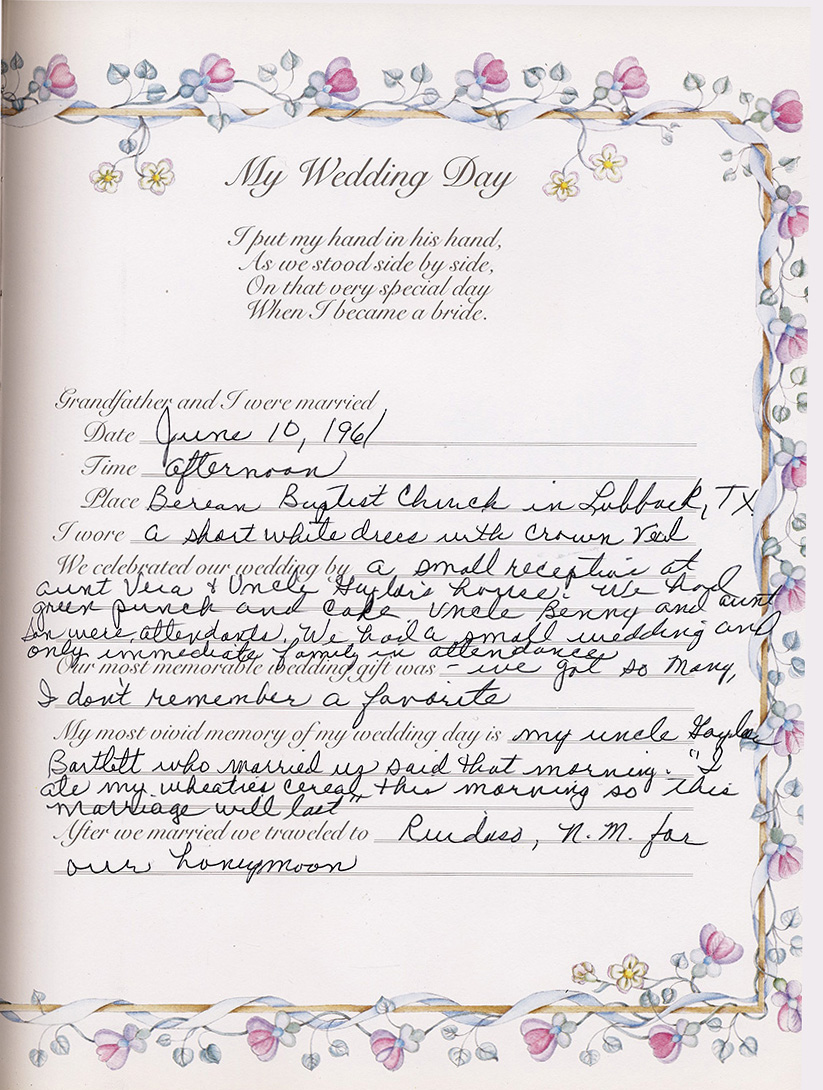 My Wedding Day
I put my hand in his hand,
As we stood side by side,
On that very special day
When I became a bride.
Grandfather and I were married
Date June 10, 1961
Time afternoon
Place Berean Baptist Church in Lubbock, TX
I wore a short white dress with crown veil
We celebrated our wedding by a small reception at
aunt Vera & Uncle Gaylor's house. We had
green punch and cake Uncle Benny and aunt
were attendants. We had a small wedding and
only immediate family in attendance
Our most memorable wedding gift was - we got so many,
I don't remember a favorite
My most vivid memory of my wedding day is my uncle
Bartlett who married us said that morning. "I
ate my wheaties cereal this morning so this
marriage will last"
After we married we traveled to Ruidoso, N.M. for
our honeymoon